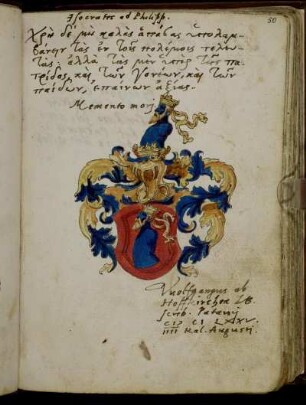 Isocrates ad Philipp.
50
Χρὴ δὲ μὴ καλὰς ἁπάσας ὑπολαμ-
βάνειν τὰς ἐν τοῖς πολέμοις τελευ-
τάς, ἀλλὰ τὰς μὲν ὑπὲρ τῆς πα-
τρίδος, καὶ τῶν γονέων, καὶ τῶν
παίδων, ἐπαίνων ἀξίας.
Memento mori
Wolffgangus ab
Hoffkirchen L B.
scrib. Patavij
LXXV.
IIII Kal. Augusti.